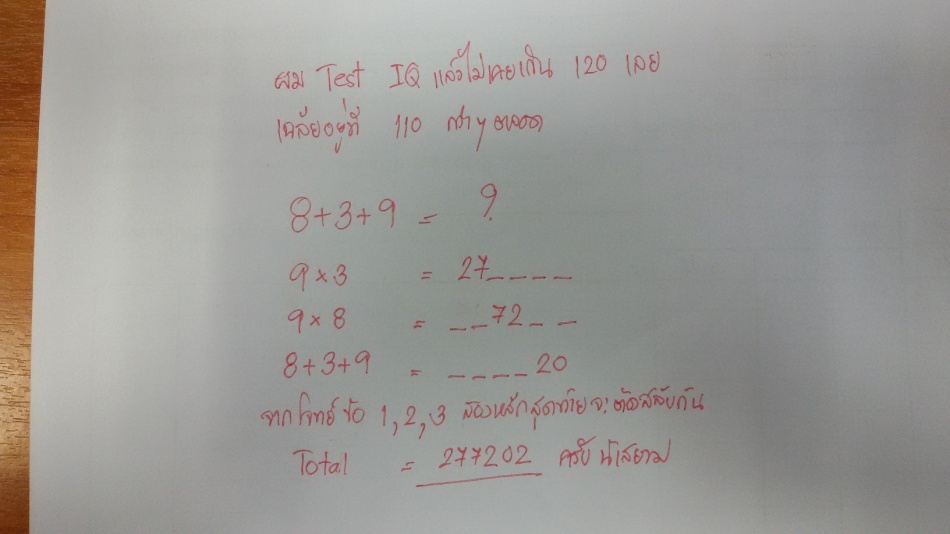 ผม Test IQ แล้วไม่เคยเกิน 120 เลย
เฉลี่ยอยู่ที่ 110 กว่าๆ ตลอด
8+3+9 = ?
9×3 = 27_ _ _ _
9×8 = _ _72_ _
8+3+9 = _ _ _ _20
จากโจทย์ข้อ 1,2,3 สองหลักสุดท้ายจะต้องสลับกัน
Total = 277202 ครับ